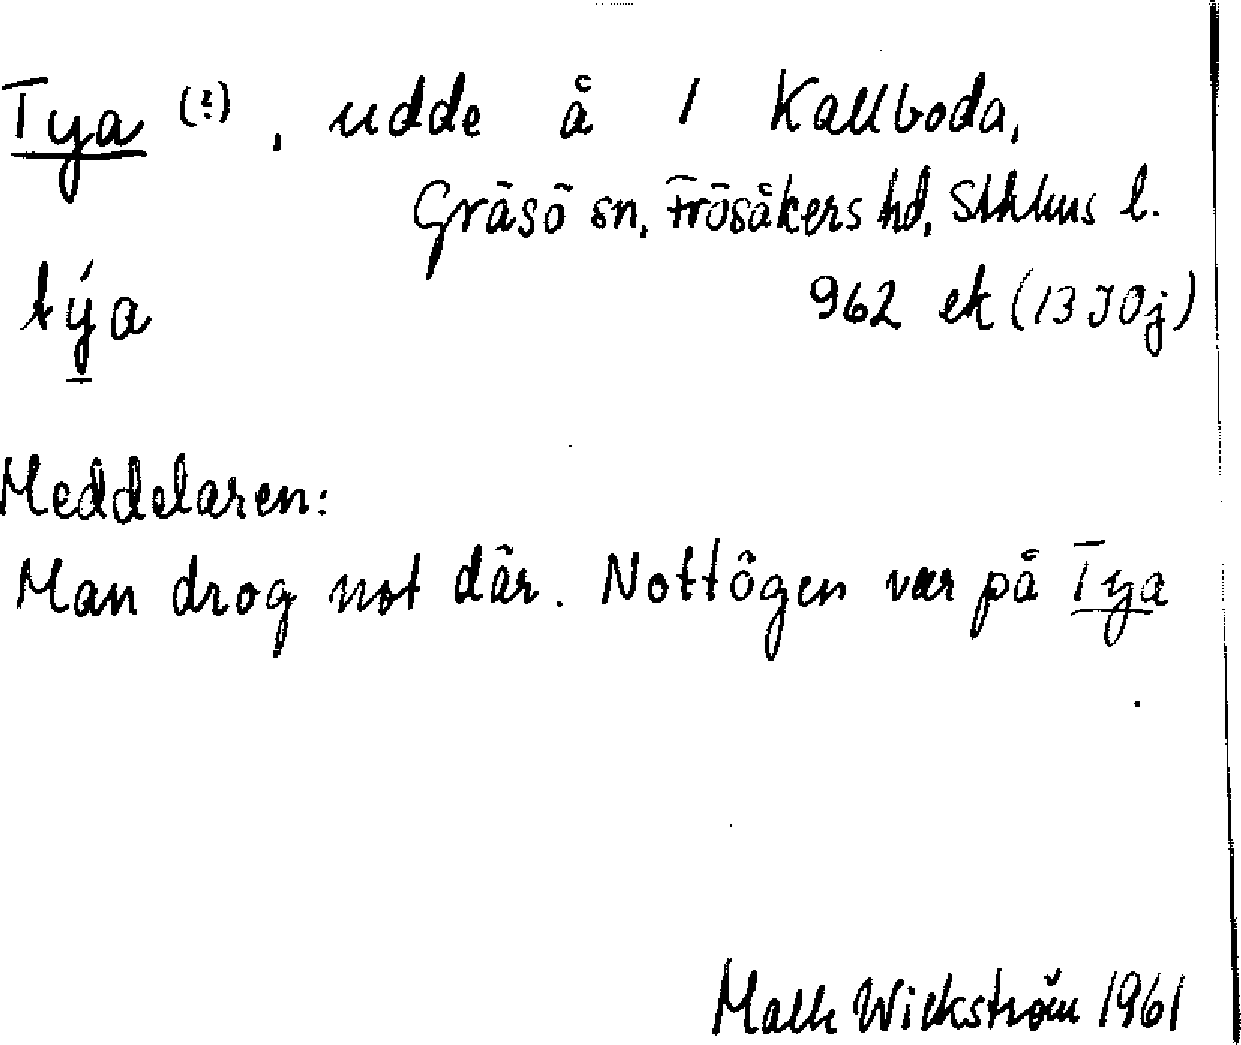 Tya (?), udde å 1 Kallboda,
Gräsö sn, Frösåkers hd, Sthlms l.
týa 962 ek (13 I 0j)
Meddelaren:
Man drog not där. Nottögen var på Tya
Wickström 1961